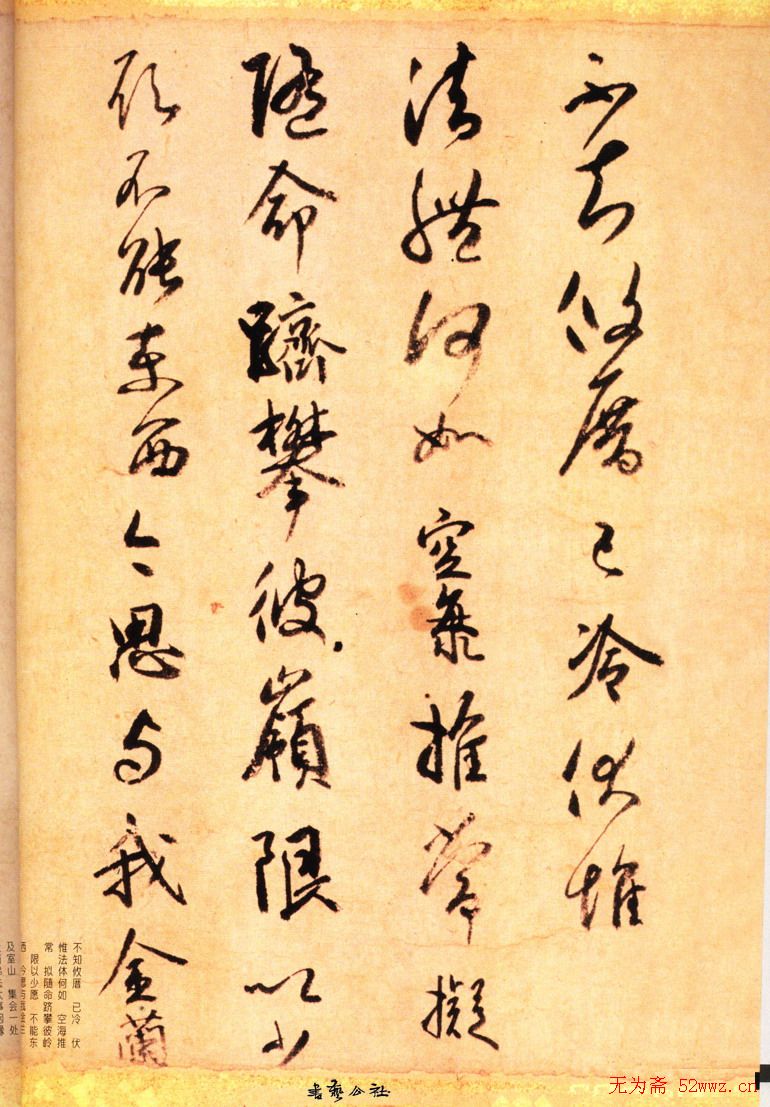 不知攸厝已冷伏惟
法體何如空海推常擬
隨命躋攀彼嶺限以少
願不能東西今思与我金蘭
不知攸厝 已冷 伏
惟法体何如 空海推
常 拟随命跻攀彼岭
限以少愿 不能东
西 今思与我金兰
及室山 集会一处
書藝公社
无为斋 52wwz.cn